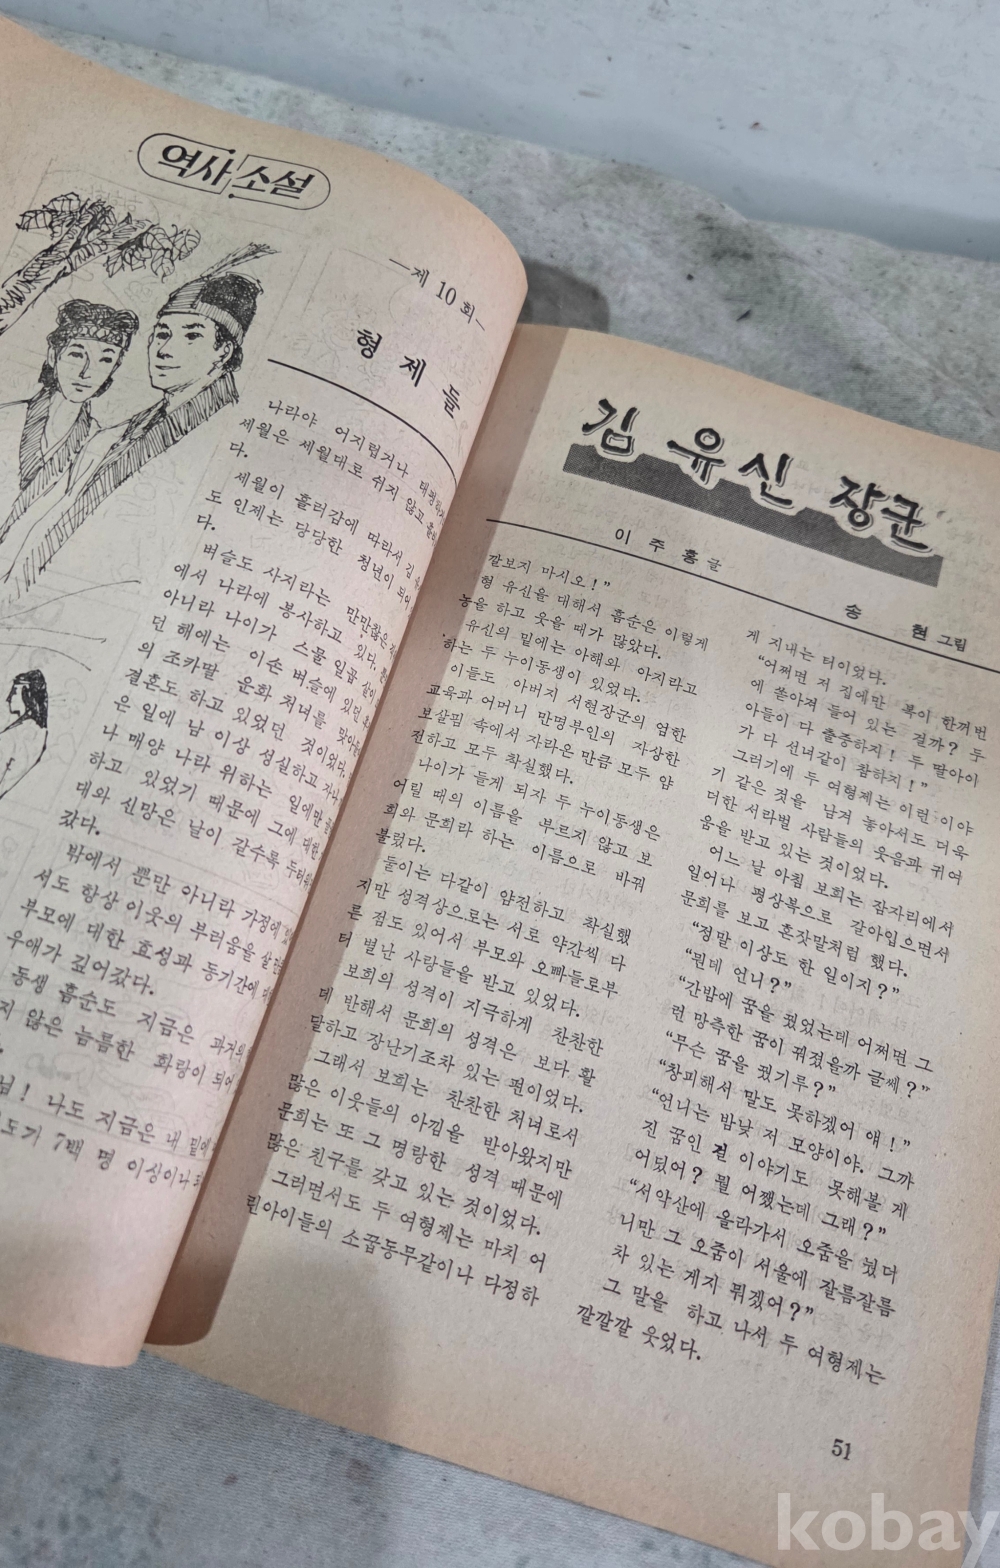 역사소설
—제 10 회—
형 제 들
나라야 어지럽거나
세월은 세월대로 쉬지 않고
다.
세월이 흘러감에 따라서 김
도 인제는 당당한 청년이 되
다.
벼슬도 사지라는 만만찮은
에서 나라에 봉사하고 있다.
아니라 나이가 스물 일곱
던 해에는 이손 벼슬에 있던
의 조카딸 운화 처녀를
결혼도 하고 있었던 것이었다.
은 일에 남 이상 성실하고
나 매양 나라 위하는 일에만
하고 있었기 때문에 그에 대한
대와 신망은 날이 갈수록
갔다.
밖에서 뿐만 아니라 가정에
서도 항상 이웃의 부러움을
부모에 대한 효성과 동기간에
우애가 깊어갔다.
동생 흠순도 지금은 과거의
지 않은 늠름한 화랑이 되어
님! 나도 지금은 내 밑에
도기 7백 명 이상이나
김유신 장군
이 주 홍 글
송 현 그림
깔보지 마시오!"
형 유신을 대해서 흠순은 이렇게
농을 하고 웃을 때가 많았다.
유신의 밑에는 아해와 아지라고
하는 두 누이동생이 있었다.
이들도 아버지 서현장군의 엄한
교육과 어머니 만명부인의 자상한
보살핌 속에서 자라온 만큼 모두 얌
전하고 모두 착실했다.
나이가 들게 되자 두 누이동생은
어릴 때의 이름을 부르지 않고 보
희와 문희라 하는 이름으로 바꿔
불렀다.
들이는 다같이 얌전하고 착실했
지만 성격상으로는 서로 약간씩 다
른 점도 있어서 부모와 오빠들로부
터 별난 사랑들을 받고 있었다.
보희의 성격이 지극하게 찬찬한
데 반해서 문희의 성격은 보다 활
달하고 장난기조차 있는 편이었다.
그래서 보희는 찬찬한 처녀로서
많은 이웃들의 아낌을 받아왔지만
문희는 또 그 명랑한 성격 때문에
많은 친구들 갖고 있는 것이었다.
그러면서도 두 여형제는 마치 어
린아이들의 소꿉동무같이나 다정하
게 지내는 터이었다.
"어쩌면 저 집에만 복이 한꺼번
에 쏟아져 들어 있는 걸까? 두
아들이 다 출중하지! 두 딸아이
가 다 선녀같이 참하지!"
그러기에 두 여형제는 이런 이야
기 같은 것을 남겨 놓아서도 더욱
더한 서라벌 사람들의 웃음과 귀여
움을 받고 있는 것이었다.
어느 날 아침 보희는 잠자리에서
일어나 평상복으로 갈아입으면서
문희를 보고 혼잣말처럼 했다.
"정말 이상도 한 일이지?"
"뭔데 언니?"
"간밤에 꿈을 꿨었는데 어쩌면 그
런 망측한 꿈이 꿔졌을까 글쎄?"
"무슨 꿈을 꿨기루?"
"창피해서 말도 못하겠어 얘!"
"언니는 밤낮 저 모양이야. 그까
진 꿈인 걸 이야기도 못해볼 게
어딨어? 뭘 어쨌는데 그래?"
"서악산에 올라가서 오줌을 눴더
니만 그 오줌이 서울에 잘름잘름
차 있는 게지 뭐겠어?"
그 말을 하고 나서 두 여형제는
깔깔깔 웃었다.
51
kobay